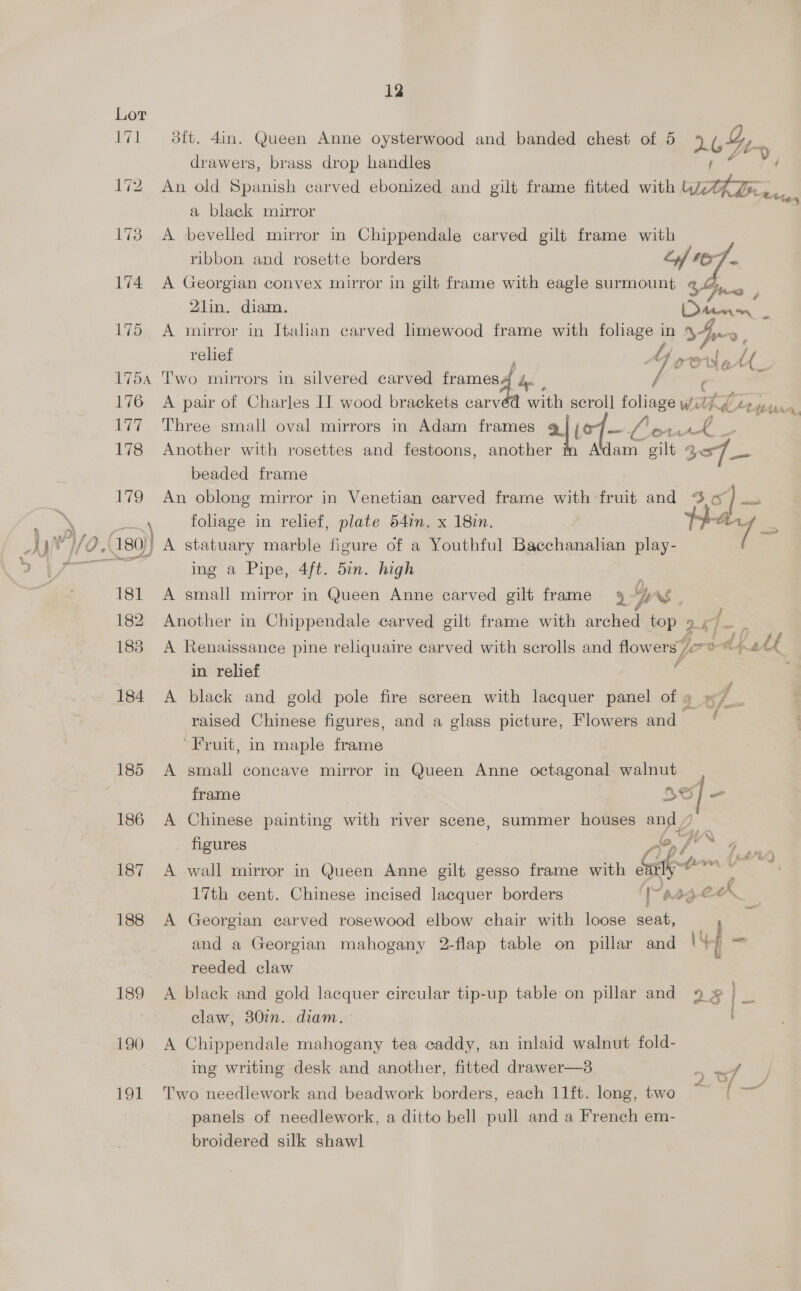 12
Lot
171 3ft. 4in. Queen Anne oysterwood and banded chest of 5
drawers, brass drop handles
172 An old Spanish carved ebonized and gilt frame fitted with
a black mirror
173 A bevelled mirror in Chippendale carved gilt frame with
ribbon and rosette borders
174 A Georgian convex mirror in gilt frame with eagle surmount
21in. diam.
175 A mirror in Italian carved limewood frame with foliage in
relief
175A Two mirrors in silvered carved frames
176 A pair of Charles II wood brackets carved with scroll foliage
177 Three small oval mirrors in Adam frames
178 Another with rosettes and festoons, another in Adam gilt
beaded frame
179 An oblong mirror in Venetian carved frame with fruit and
foliage in relief, plate 54in. x 18in.
180 A statuary marble figure of a Youthful Bacchanalian play-
ing a Pipe, 4ft. 5in. high
181 A small mirror in Queen Anne carved gilt frame
182 Another in Chippendale carved gilt frame with arched top
183 A Renaissance pine reliquaire carved with scrolls and flowers
in relief
184 A black and gold pole fire screen with lacquer panel of
raised Chinese figures, and a glass picture, Flowers and
Fruit, in maple frame
185 A small concave mirror in Queen Anne octagonal walnut
frame
186 A Chinese painting with river scene, summer houses and
figures
187 A wall mirror in Queen Anne gilt gesso frame with early
17th cent. Chinese incised lacquer borders
188 A Georgian carved rosewood elbow chair with loose seat,
and a Georgian mahogany 2-flap table on pillar and
reeded claw
189 A black and gold lacquer circular tip-up table on pillar and
claw, 30in. diam.
190 A Chippendale mahogany tea caddy, an inlaid walnut fold-
ing writing desk and another, fitted drawer—3
191 Two needlework and beadwork borders, each 11ft. long, two
panels of needlework, a ditto bell pull and a French em-
broidered silk shawl